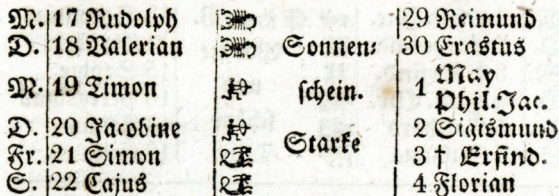 M. 17 Rudolph 29 Reimund
D. 18 Valerian Sonnen⸗ 30 Erastus
M. 19 Timon schein. 1 May Phil. Jac.
D. 20 Jacobine Starke 2 Sigismund
Fr. 21 Simon 3 † Erfind.
S. 22 Cajus 4 Florian